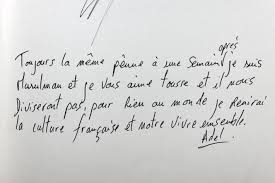 après
Toujours la même peine a une semaine je suis
Musulman et je vous aime tousse et il nous
Diviseront pas, pour Rien au monde je Renirai
la culture française et notre vivre ensemble.
Adel.